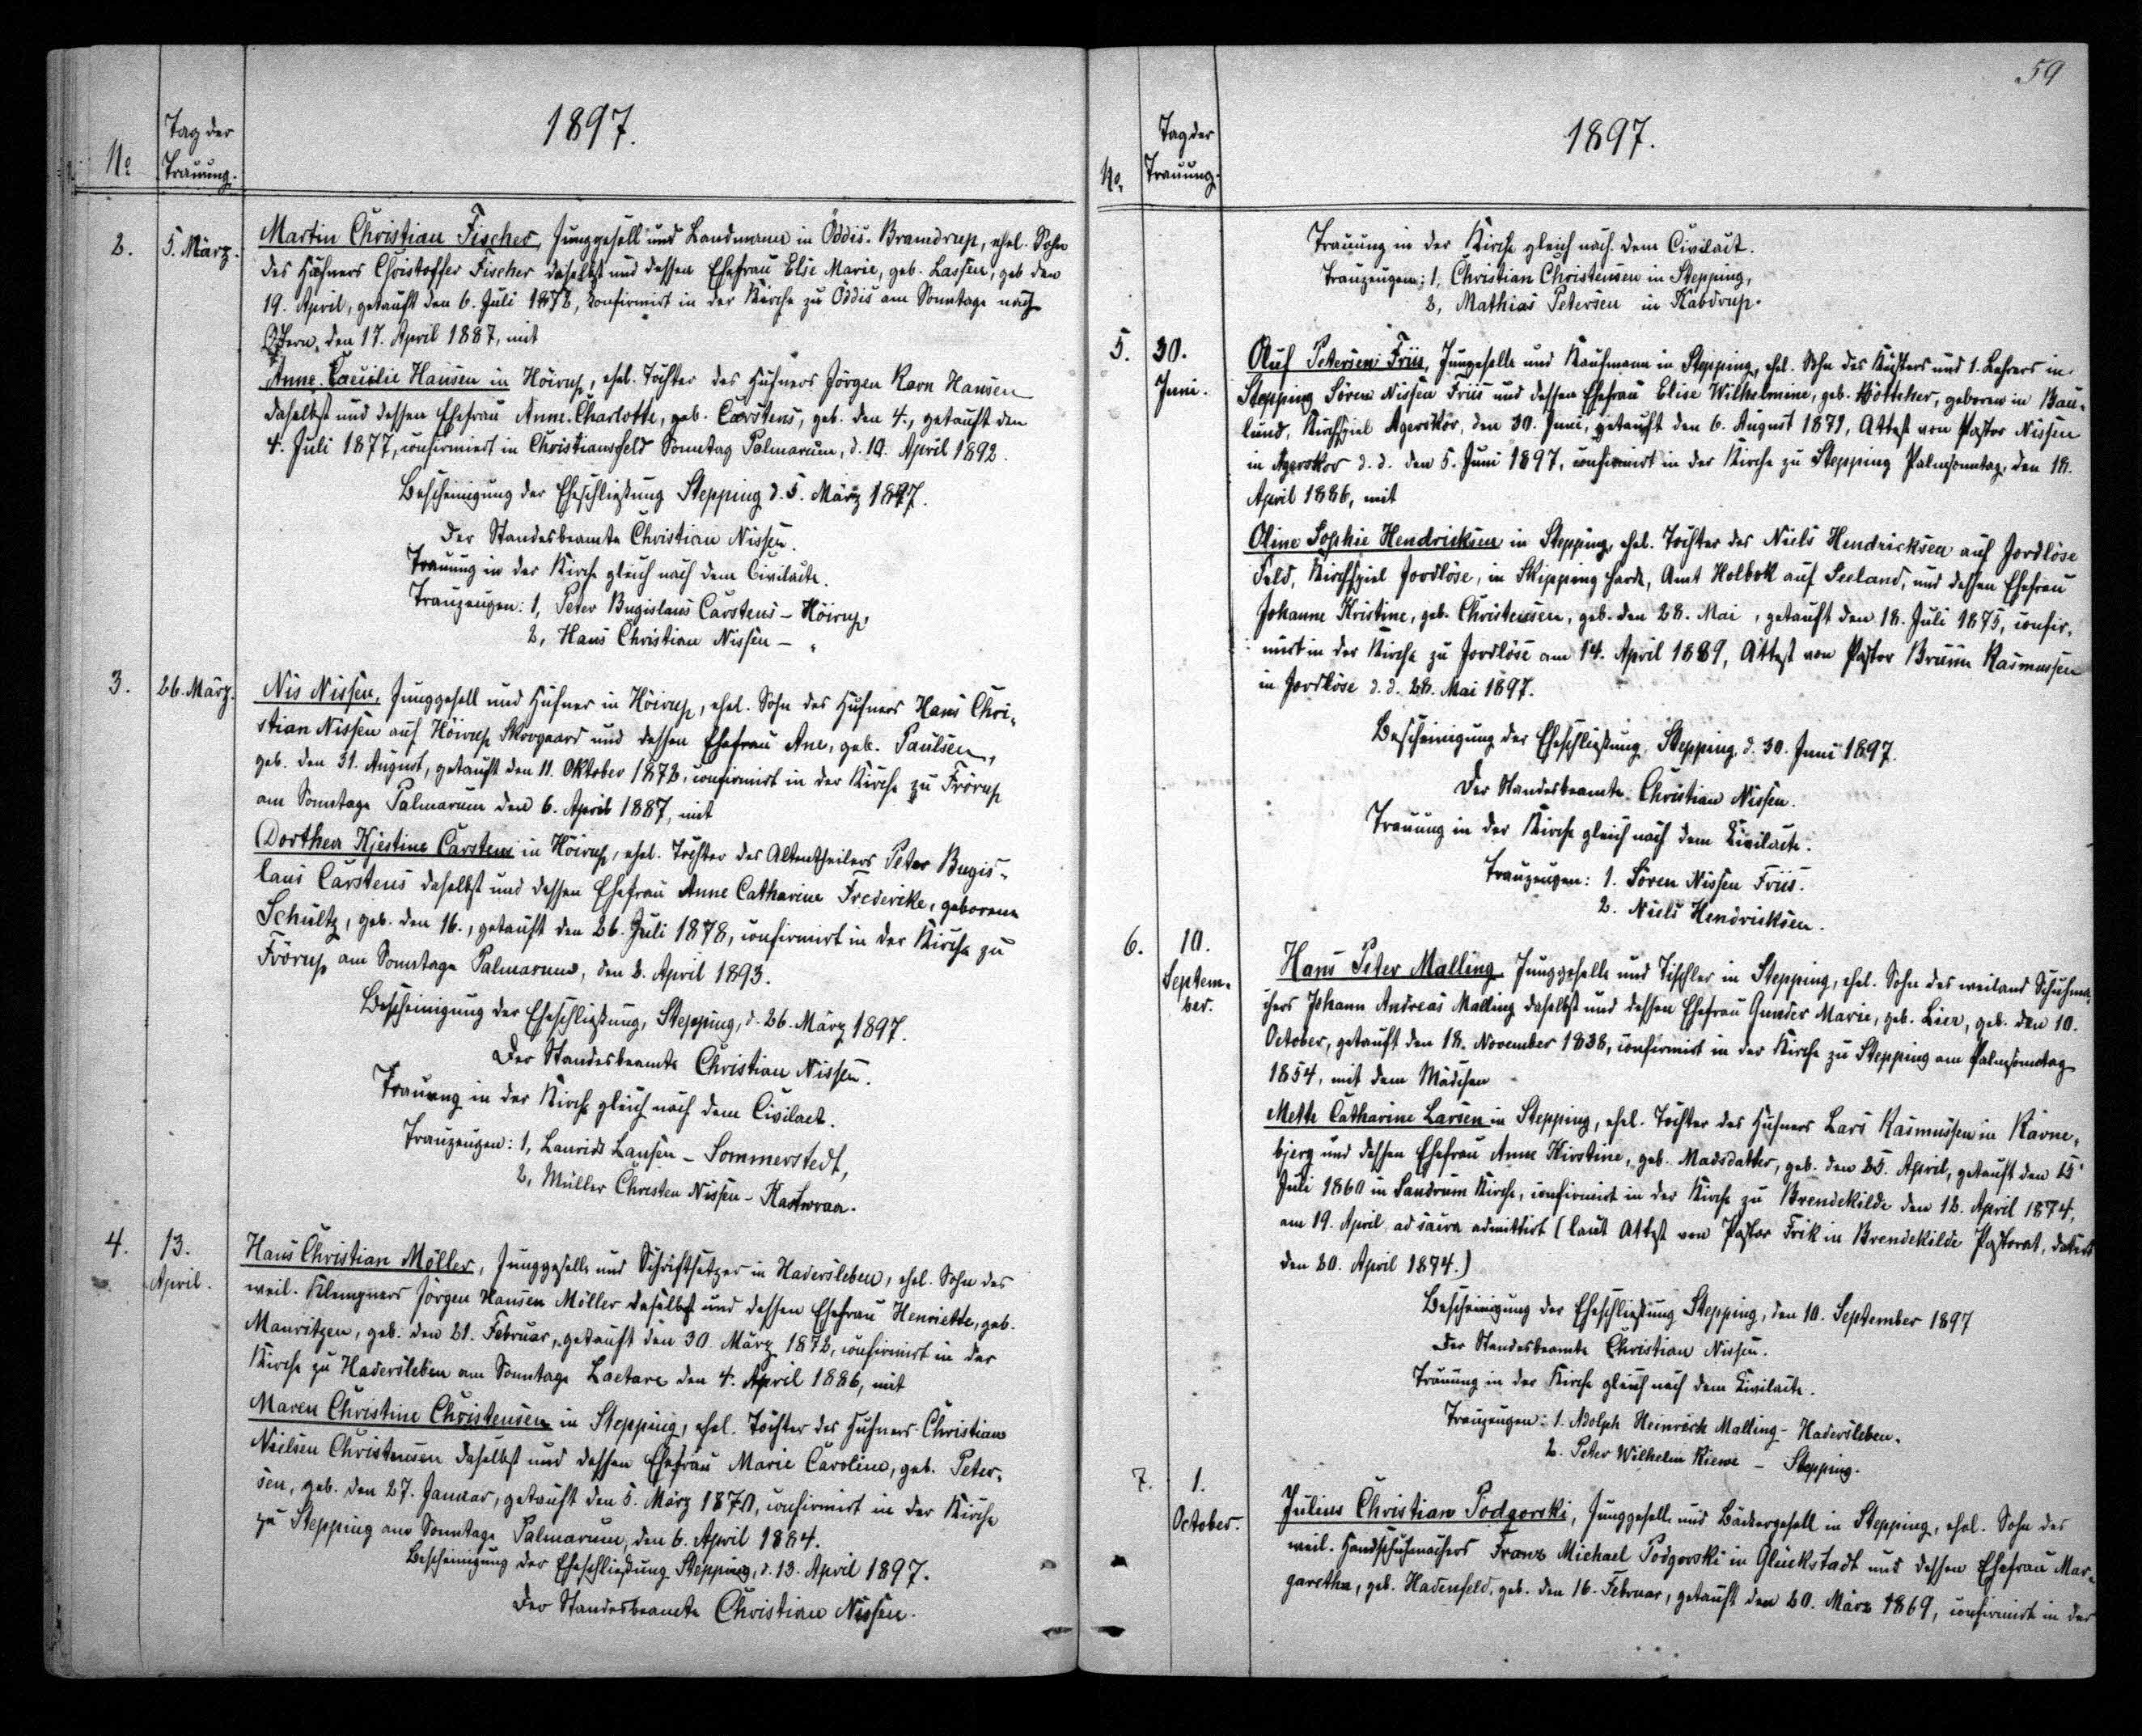 1897.
No Tag der
Trauung.
2. 5. März. Martin Christian Fischer, Junggesell und Landmann in Ödis-Bramdrup, ehel. Sohn
des Hufners Christoffer Fischer daselbst und dessen Ehefrau Else Marie, geb. Lassen, geb den
19. April, getauft den 6. Juli 1872, konfirmirt in der Kirche zu Öddis am Sonntage nach
Ostern, den 17. April 1887, mit
Anne Caecilie Hansen in Höirup, ehel. Tochter des Hufners Jörgen Ravn Hansen
daselbst und dessen Ehefrau Anne Charlotte, geb. Carstens, geb. den 4., getauft den
4. Juli 1877, confirmirt in Christiansfeld Sonntag Palmarum, d. 10. April 1892.
Bescheinigung der Eheschließung Stepping d. 5. März 1897.
Der Standesbeamte Christian Nissen.
Trauung in der Kirche gleich nach dem Civilacte.
Trauzeugen: 1, Peter Bugislaus Carstens - Höirup,
2, Hans Christian Nissen - "
3. 26. März. Nis Nissen, Junggesell und Hufner in Höirup, ehel. Sohn des Hufners Hans Chri-
stian Nissen auf Höirup Skovgaard und dessen Ehefrau Ane, geb. Paulsen,
geb. den 31. August, getauft den 11. Oktober 1872, confirmirt in der Kirche zu Frörup
am Sonntage Palmarum den 6. April 1887, mit
Dorthea Kjestine Carstens in Höirup, ehel. Tochter des Altentheilers Peter Bugis-
laus Carstens daselbst und dessen Ehefrau Anne Catharine Frederike, geborene
Schultz, geb. den 16., getauft den 26. Juli 1878, confirmirt in der Kirche zu
Frörup am Sonntage Palmarum, den 2. April 1893.
Bescheinigung der Eheschließung, Stepping, d. 26. März 1897.
Der Standesbeamte Christian Nissen.
Trauung in der Kirche gleich nach dem Civilact.
Trauzeugen: 1, Laurids Lausen - Sommerstedt,
2, Müller Christen Nissen - Kastvraa.
4. 13.
April. Hans Christian Möller, Junggeselle und Schriftsetzer in Hadersleben, ehel. Sohn des
weil. Klempners Jörgen Hansen Möller daselbst und dessen Ehefrau Henriette, geb.
Mauritzen, geb. den 21. Februar, getauft den 30 März 1872, confirmirt in der
Kirche zu Hadersleben am Sonntage Laetare den 4. April 1886, mit
Maren Christine Christensen in Stepping, ehel. Tochter des Hufners Christian
Nielsen Christensen daselbst und dessen Ehefrau Marie Caroline, geb. Peter-
sen, geb. den 27. Januar, getauft den 5. März 1870, confirmirt in der Kirche
zu Stepping am Sonntage Palmarum, den 6. April 1884.
Bescheinigung der Eheschließung Stepping, d. 13. April 1897.
Der Standesbeamte Christian Nissen.
59
1897.
No, Tag der
Trauung.
Trauung in der Kirche gleich nach dem Civilact.
Trauzeugen: 1, Christian Christensen in Stepping,
2, Mathias Petersen in Kabdrup.
5. 30.
Juni. Oluf Petersen Friis, Junggeselle und Kaufmann in Stepping, ehel. Sohn des Küsters und 1. Lehrers in
Stepping Sören Nissen Friis und dessen Ehefrau Elise Wilhelmine, geb. Böttcher, geboren in Bau-
lund, Kirchspiel Agerskov, den 30. Juni, getauft den 6. August 1871, Attest von Pastor Nissen
in Agerskov d. d. den 5. Juni 1897, confirmirt in der Kirche zu Stepping Palmsonntag, den 18.
April 1886, mit
Oline Sophie Hendricksen in Stepping, ehel. Tochter des Niels Hendricksen auf Jordlöse
Feld, Kirchspiel Jordlöse, in Skipping Harde, Amt Holbek auf Seeland, und dessen Ehefrau
Johanne Kristine, geb. Christensen, geb. den 28. Mai, getauft den 18. Juli 1875, confir-
mirt in der Kirche zu Jordlöse am 14. April 1889, Attest von Pastor Bruun Rasmussen
in Jordlöse d. d. 28. Mai 1897.
Bescheinigung der Eheschließung, Stepping, d. 30. Juni 1897.
Der Standesbeamte Christian Nissen.
Trauung in der Kirche gleich nach dem Civilacte.
Trauzeugen: 1. Sören Nissen Friis.
2. Niels Hendricksen.
6. 10.
Septem-
ber. Hans Peter Malling Junggeselle und Tischler in Stepping, ehel. Sohn des weiland Schuhma-
chers Johann Andreas Malling daselbst und dessen Ehefrau Gunder Marie, geb. Lier, geb. den 10.
October, getauft den 18. November 1838, confirmirt in der Kirche zu Stepping am Palmsonntag
1854, mit dem Mädchen
Mette Catharine Larsen in Stepping, ehel. Tochter des Hufners Lars Rasmussen in Ravne-
bjerg und dessen Ehefrau Anne Kirstine, geb. Madsdatter, geb. den 25. April, getauft den 15
Juli 1860 in Sandrum Kirche, confirmirt in der Kirche zu Brendekilde den 12. April 1874,
am 19. April ad sacra admittirt (laut Attest von Pastor Frik in Brendekilde Pastorat, datirt
den 20. April 1874.)
Bescheinigung der Eheschließung Stepping, den 10. September 1897
Der Standesbeamte Christian Nissen.
Trauung in der Kirche gleich nach dem Civilacte.
Trauzeugen: 1. Adolph Heinrich Malling - Hadersleben.
2. Peter Wilhelm Riewe - Stepping.
7. 1.
October. Julius Christian Podgorski, Junggeselle und Bäckergesell in Stepping, ehel. Sohn des
weil. Handschuhmachers Franz Michael Podgorski in Glückstadt und dessen Ehefrau Mar-
garetha, geb. Hadenfeld, geb. den 16. Februar, getauft den 20. März 1869, confirmirt in der